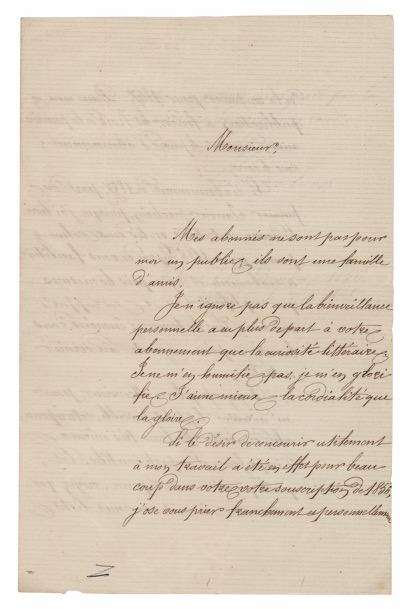 Monsieur,
Mes abonnés ne sont pas pour
moi un public, ils sont une famille
d'amis.
Je n'ignore pas que la bienveillance
personnelle a eu plus de part à votre
abonnement que la curiosité littéraire.
Je ne m'en humilie pas, je m'en glori
fie. J'aime mieux la cordialité que
la gloire.
Si le désir de concourir utilement
à mon travail a été en effet pour beau
coup dans votre votre souscription de 1856,
j'ose vous prier franchement et personnellement